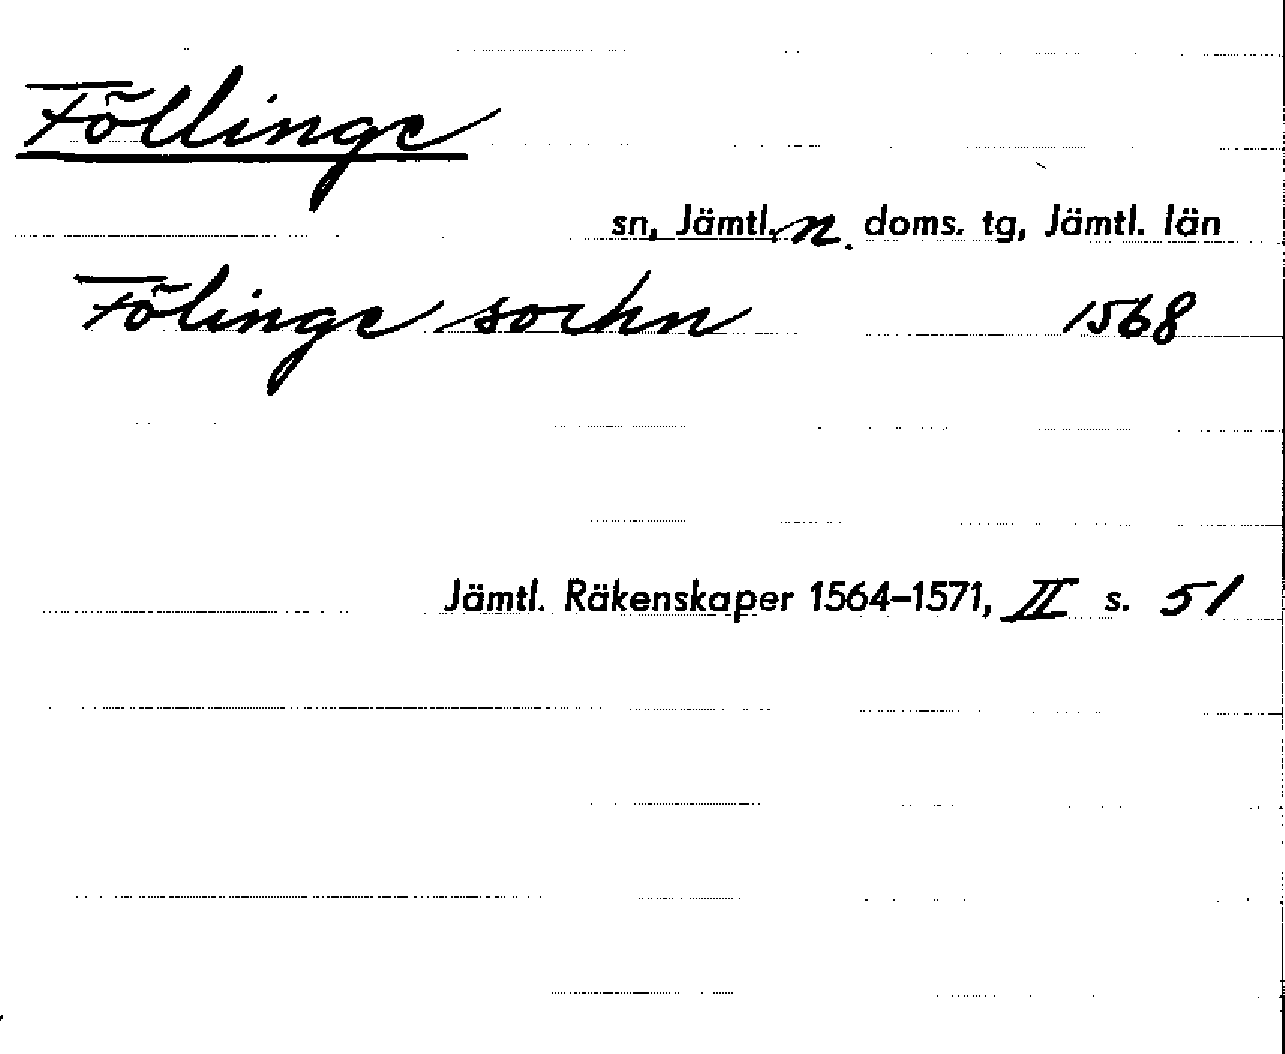 Föllinge
sn, Jämtl. n. doms. tg, Jämtl. län
Fölinge sochn 1568
Jämtl. Räkenskaper 1564–1571, II s. 51